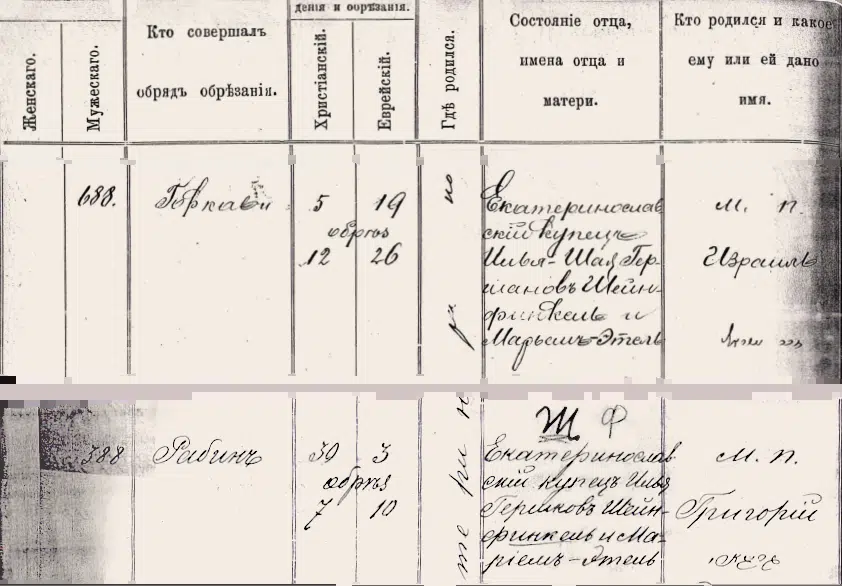 Женскаго.
Мужескаго.
Кто совершалъ
обрядъ обрѣзанія.
денія и обрѣзанія.
Христіанскій.
Еврейскій.
Гдѣ родился.
Состояніе отца,
имена отца и
матери.
Кто родился и какое
ему или ей дано
имя.
688.
5 19
обрѣз
12 26
Екатеринослав
скій купецъ
Илья-Шая Гер
шановъ Шейн-
финкель и
Марьямъ-Этель
м. п.
Израиль
388
Рабинъ
30 3
обрѣз
7 10
Ш Ф
Екатеринослав
скій купецъ Илья
Гершковъ Шейн-
финкель и Ма-
ріемъ-Этель
м. п.
Григорій